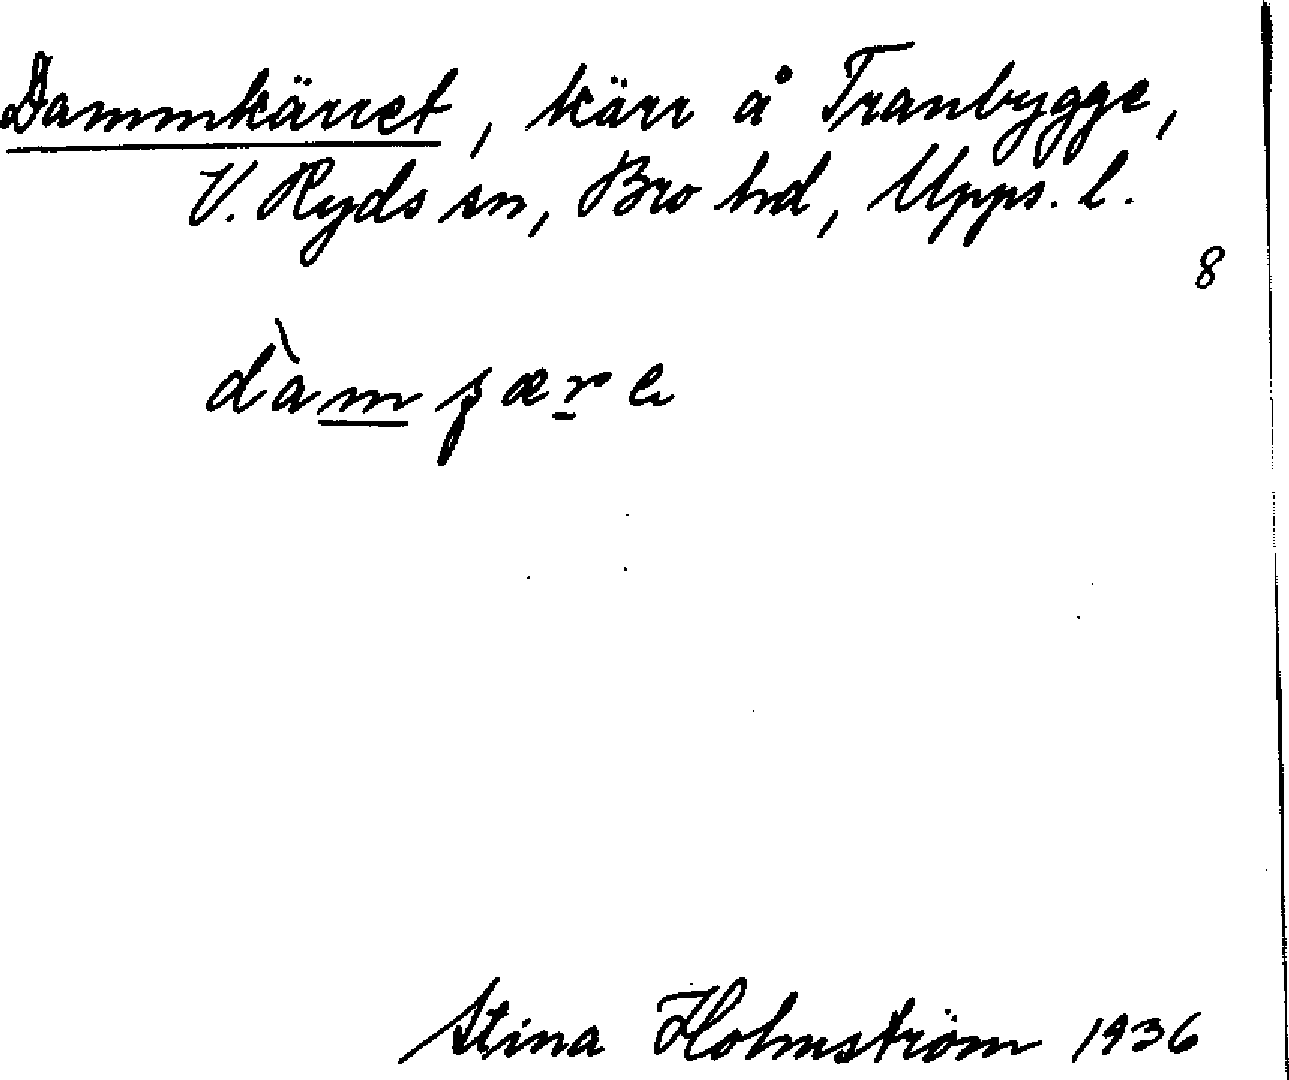 Dammkärret, kärr å Tranbygge,
V. Ryds sn, Bro hd, Upps. l.
8
Stina Holmström 1936